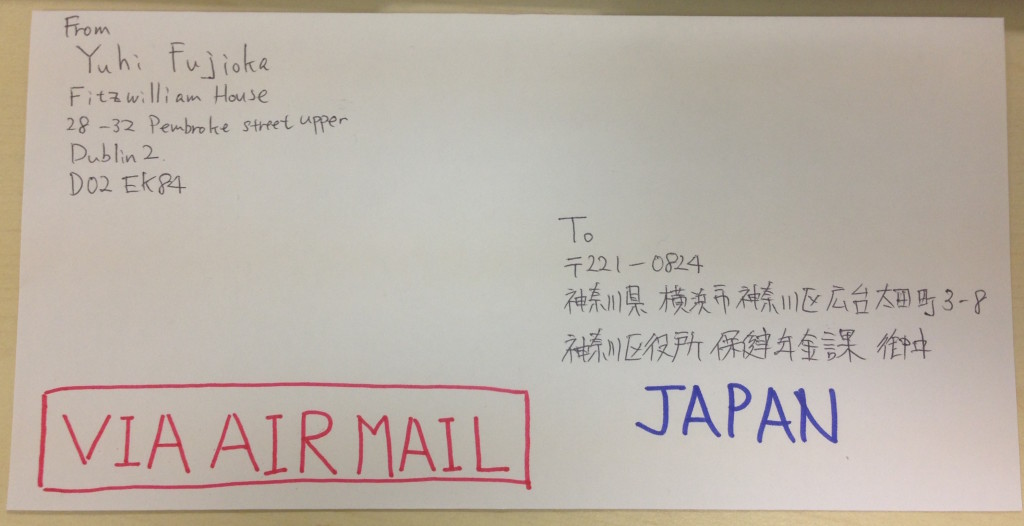 From
Yuhi Fujioka
Fitzwilliam House
28-32 Pembroke street upper
Dublin 2.
D02 EK84
To
〒221-0824
神奈川県 横浜市神奈川区広台太田町3-8
神奈川区役所 保健年金課 御中
JAPAN
VIA AIR MAIL